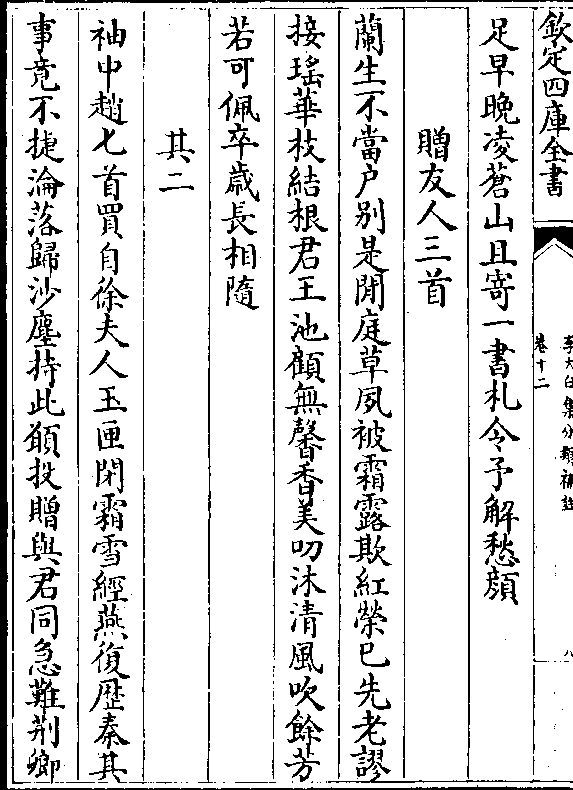 欽定四庫全書
李太白集分類補註
卷十二
八
足早晩凌蒼山且寄一書札令予解愁顔
贈友人三首
蘭生不當户别是閒庭草夙被霜露欺紅榮已先老謬
接瑤華枝結根君王池顧無馨香美叨沐清風吹餘芳
若可佩卒歲長相隨
其二
袖中趙匕首買自徐夫人玉匣閉霜雪經燕復歴秦其
事竟不捷淪落歸沙塵持此願投贈與君同急難荆卿